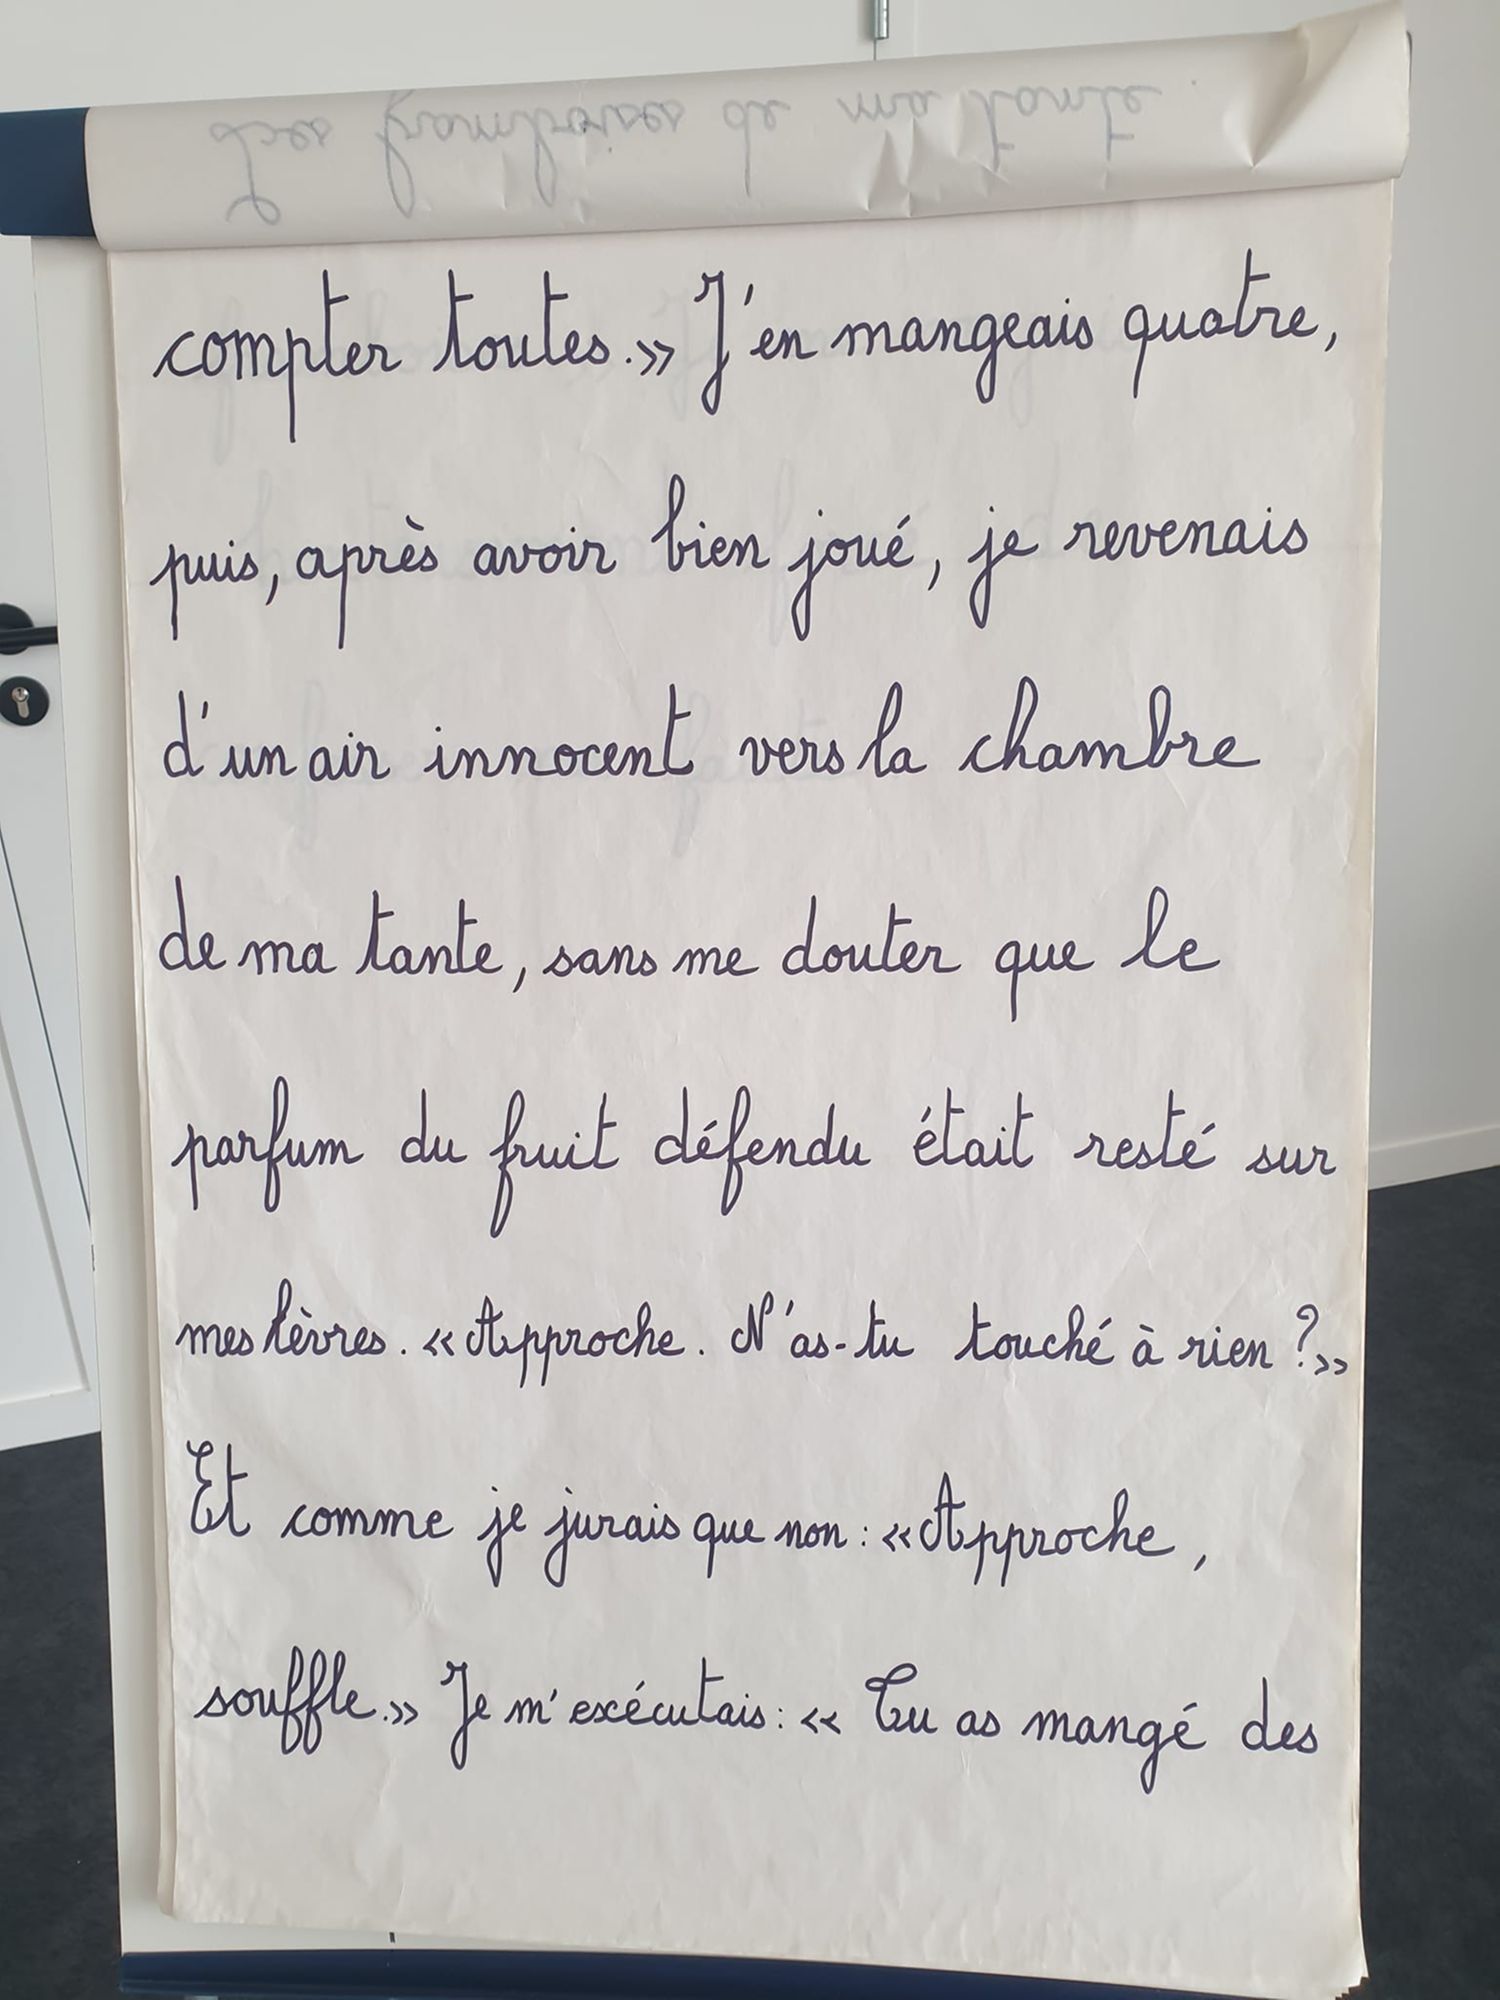 Les framboises de ma tante.
compter toutes.» J'en mangeais quatre,
puis, après avoir bien joué, je revenais
d'un air innocent vers la chambre
de ma tante, sans me douter que le
parfum du fruit défendu était resté sur
mes lèvres. «Approche. N'as-tu touché à rien ?»
Et comme je jurais que non : «Approche,
souffle.» Je m'exécutais : « Tu as mangé des